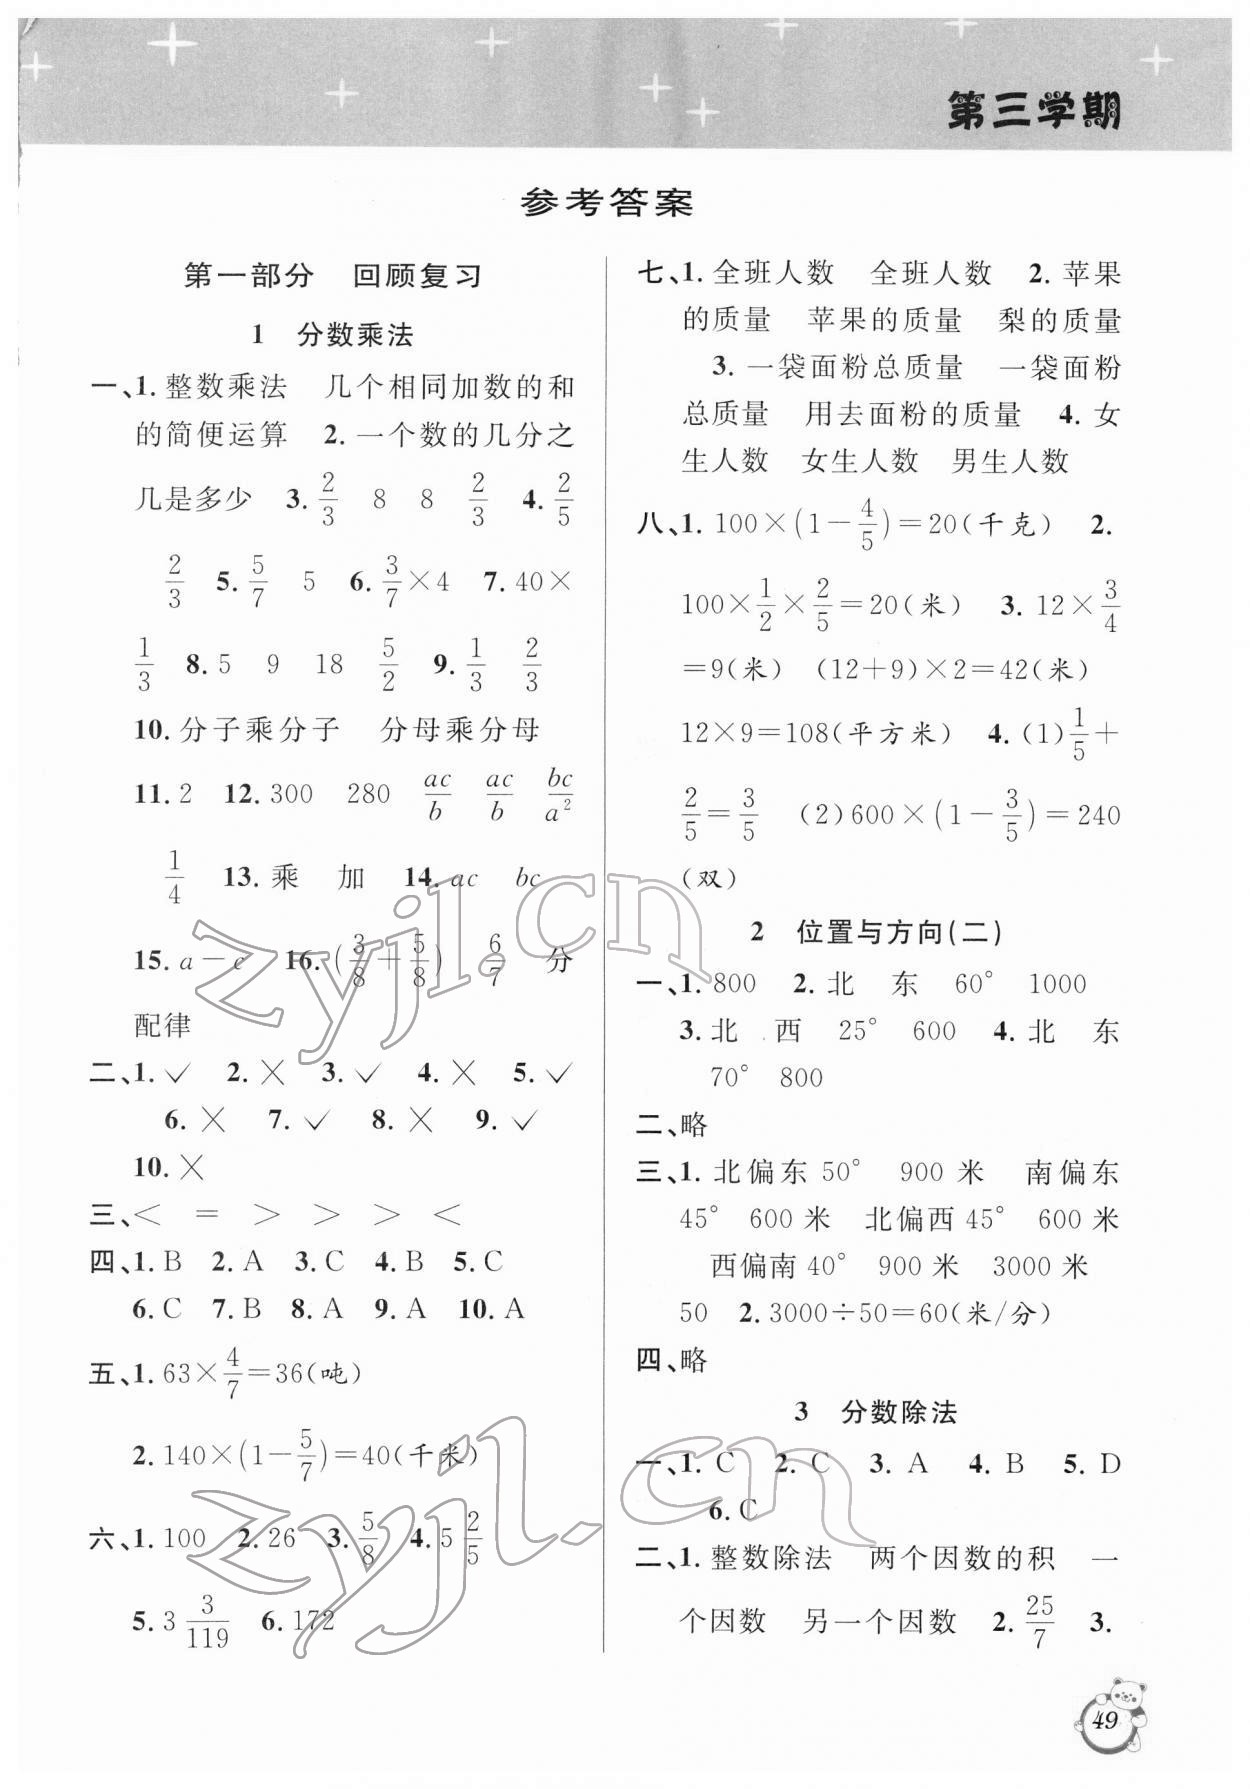 第三学期
参考答案
第一部分 回顾复习
1 分数乘法
一、1. 整数乘法 几个相同加数的和
的简便运算 2. 一个数的几分之
几是多少 3. 2/3 8 8 2/3 4. 2/5
2/3 5. 5/7 5 6. 3/7×4 7. 40×
1/3 8. 5 9 18 5/2 9. 1/3 2/3
10. 分子乘分子 分母乘分母
11. 2 12. 300 280 ac/b ac/b bc/a²
1/4 13. 乘 加 14. ac bc
15. a－c 16. (3/8＋5/8) 6/7 分
配律
二、1. √ 2. × 3. √ 4. × 5. √
6. × 7. √ 8. × 9. √
10. ×
三、＜ ＝ ＞ ＞ ＞ ＜
四、1. B 2. A 3. C 4. B 5. C
6. C 7. B 8. A 9. A 10. A
五、1. 63×4/7＝36(吨)
2. 140×(1－5/7)＝40(千米)
六、1. 100 2. 26 3. 5/8 4. 5 2/5
5. 3 3/119 6. 172
七、1. 全班人数 全班人数 2. 苹果
的质量 苹果的质量 梨的质量
3. 一袋面粉总质量 一袋面粉
总质量 用去面粉的质量 4. 女
生人数 女生人数 男生人数
八、1. 100×(1－4/5)＝20(千克) 2.
100×1/2×2/5＝20(米) 3. 12×3/4
＝9(米) (12＋9)×2＝42(米)
12×9＝108(平方米) 4. (1)1/5＋
2/5＝3/5 (2)600×(1－3/5)＝240
(双)
2 位置与方向(二)
一、1. 800 2. 北 东 60° 1000
3. 北 西 25° 600 4. 北 东
70° 800
二、略
三、1. 北偏东50° 900米 南偏东
45° 600米 北偏西45° 600米
西偏南40° 900米 3000米
50 2. 3000÷50＝60(米/分)
四、略
3 分数除法
一、1. C 2. C 3. A 4. B 5. D
6. C
二、1. 整数除法 两个因数的积 一
个因数 另一个因数 2. 25/7 3.
49
zyjl.cn
zyjl.cn